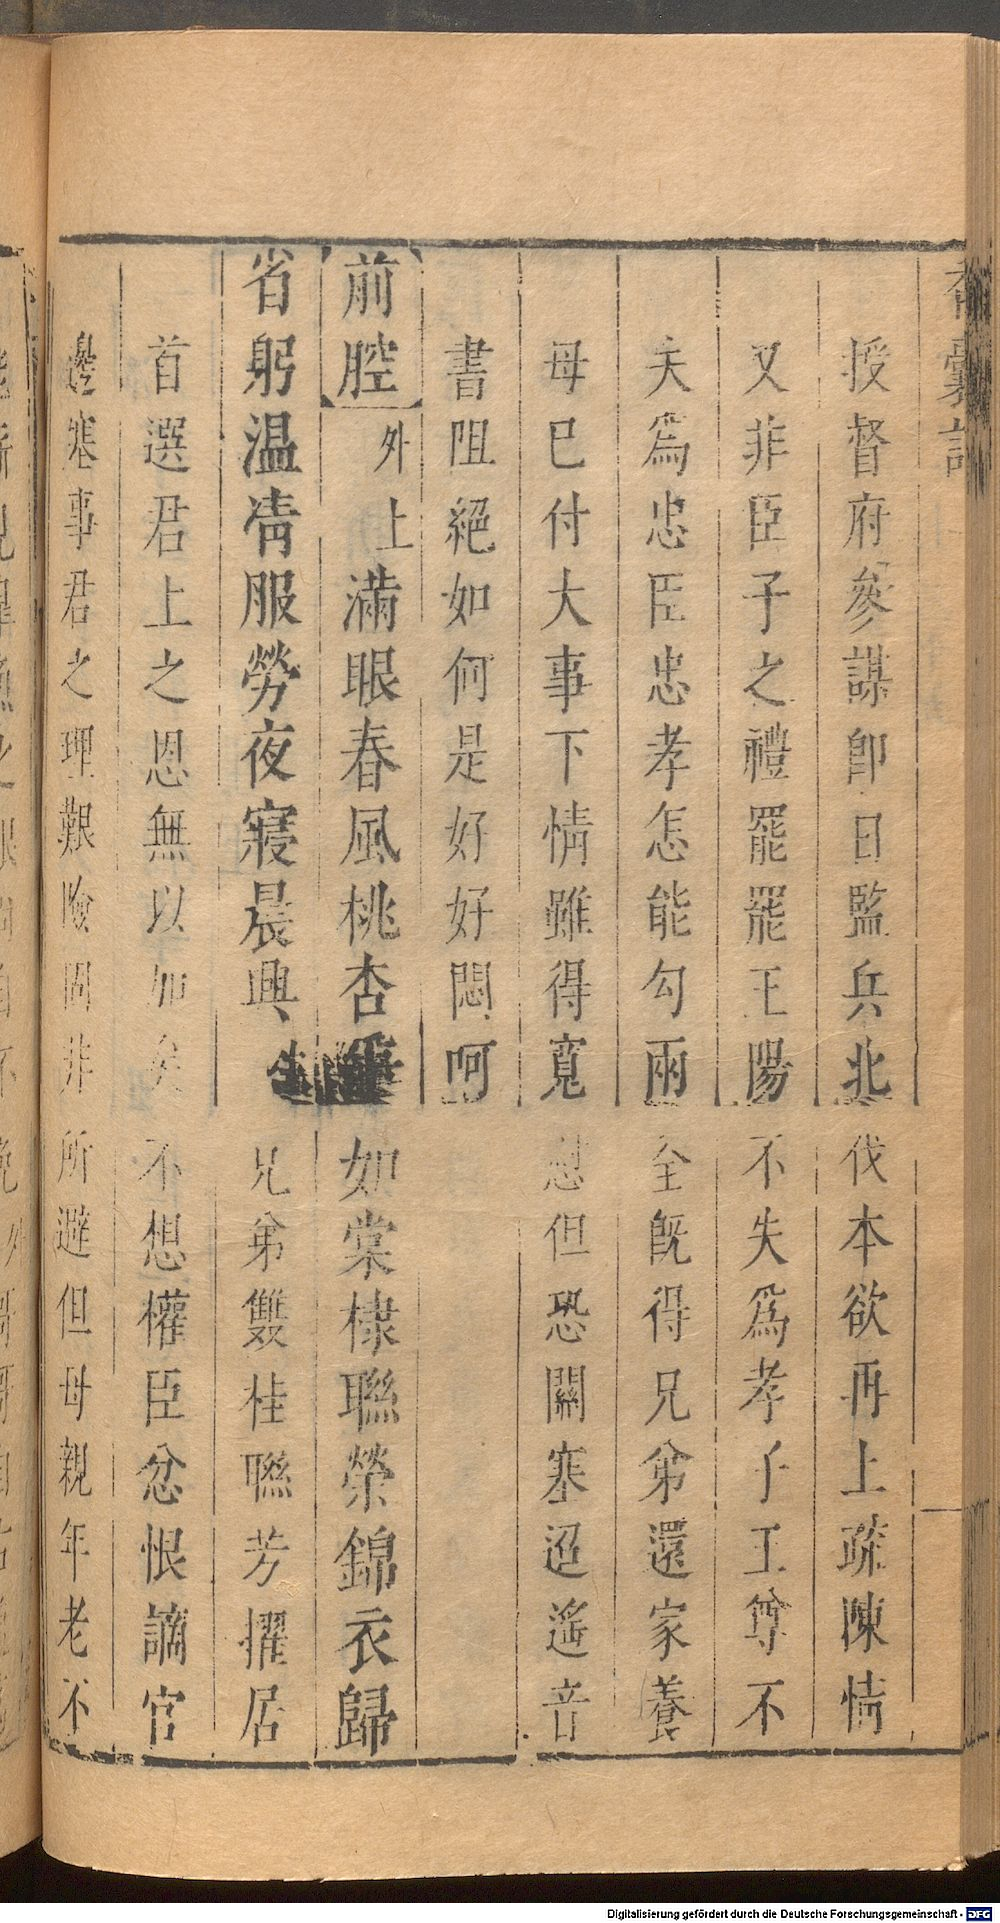 香囊記
授督府參謀卽日監兵北伐本欲再上疏陳情
又非臣子之禮罷罷王陽不失爲孝子王尊不
失爲忠臣忠孝怎能勾兩全旣得兄弟還家養
母已付大事下情雖得寬慰但恐關塞迢遙音
書阻絕如何是好好悶呵
前腔 外上 滿眼春風桃杏 如棠棣聯榮錦衣歸
省躬温凊服勞夜寢晨興 生 兄弟雙桂聯芳擢居
首選君上之恩無以加矣不想權臣忿恨謫官
邊塞事君之理艱險固非所避但母親年老不
Digitalisierung gefördert durch die Deutsche Forschungsgemeinschaft - DFG